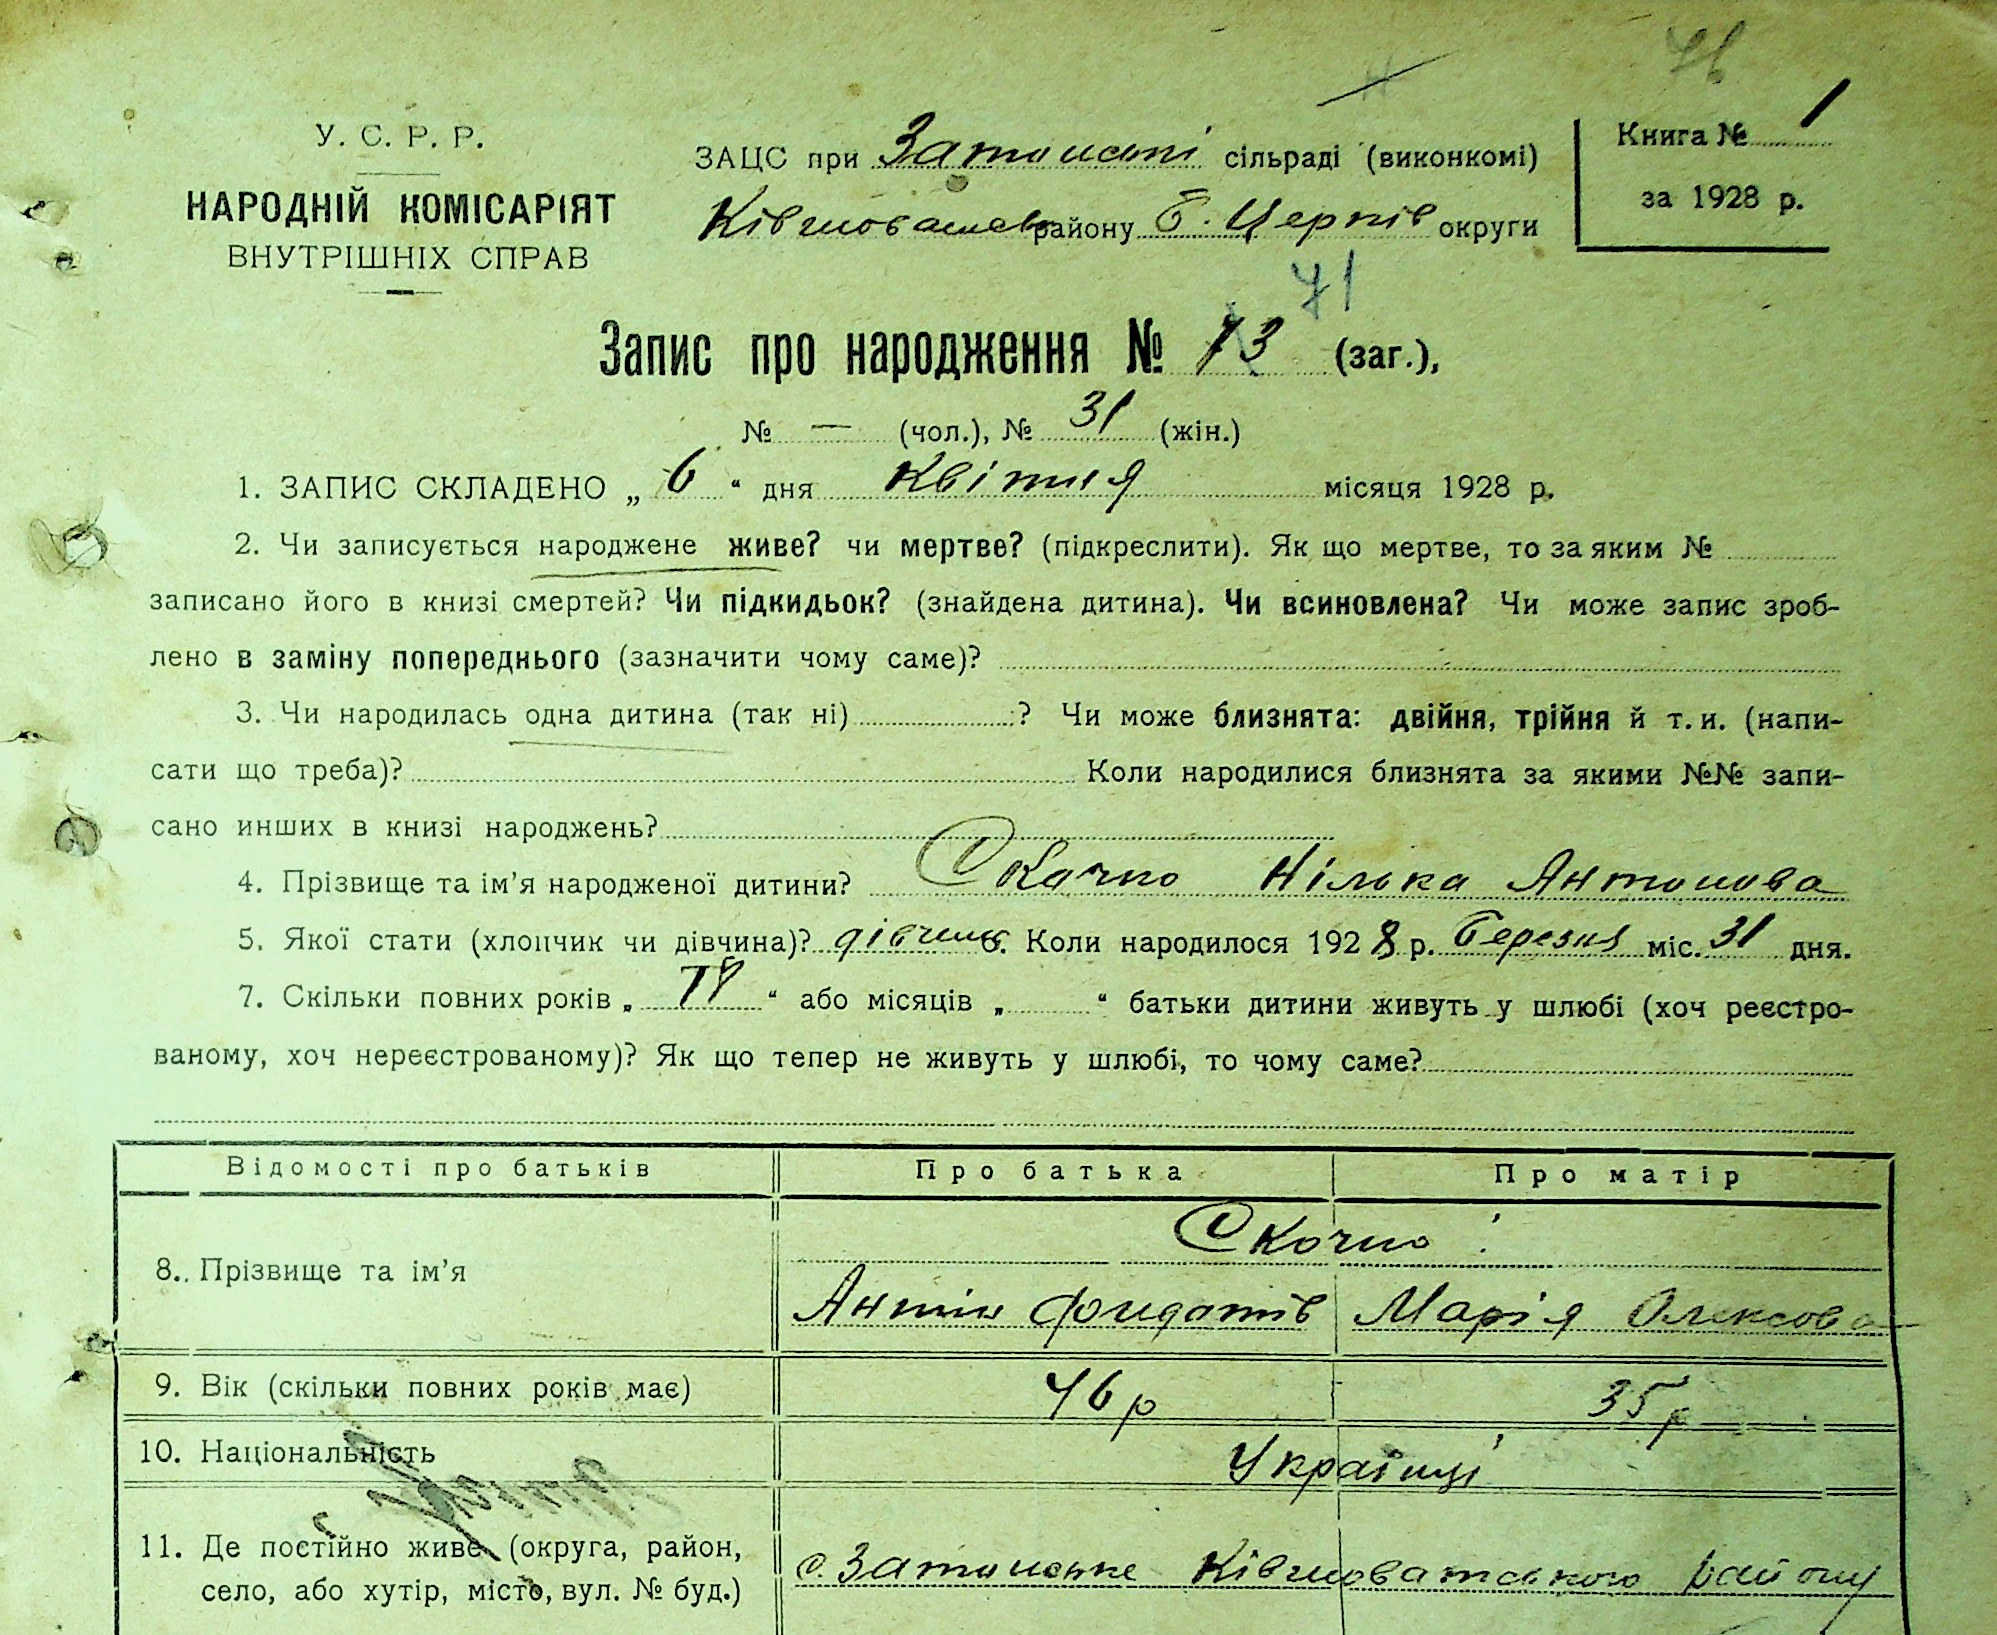 71
У. С. Р. Р.
НАРОДНІЙ КОМІСАРІЯТ
ВНУТРІШНІХ СПРАВ
ЗАЦС при Затонській сільраді (виконкомі)
району Б. Церків округи
Книга № 1
за 1928 р.
71
Запис про народження № 73 (заг.),
№ — (чол.), № 31 (жін.)
1. ЗАПИС СКЛАДЕНО „ 6 “ дня Квітня місяця 1928 р.
2. Чи записується народжене живе? чи мертве? (підкреслити). Як що мертве, то за яким №
записано його в книзі смертей? Чи підкидьок? (знайдена дитина). Чи всиновлена? Чи може запис зроб-
лено в заміну попереднього (зазначити чому саме)?
3. Чи народилась одна дитина (так ні) ? Чи може близнята: двійня, трійня й т. и. (напи-
сати що треба)? Коли народилися близнята за якими №№ запи-
сано инших в книзі народжень?
4. Прізвище та ім'я народженої дитини? Скачко Нілька Антонова
5. Якої стати (хлопчик чи дівчина)? дівчин 6. Коли народилося 1928 р. Березня міс. 31 дня.
7. Скільки повних років „ “ або місяців „ “ батьки дитини живуть у шлюбі (хоч реєстро-
ваному, хоч нереєстрованому)? Як що тепер не живуть у шлюбі, то чому саме?
Відомості про батьків Про батька Про матір
8. Прізвище та ім'я Скочко
Антін Марія Олексова
9. Вік (скільки повних років має) 46 р 35 р
10. Національність Українці
11. Де постійно живе (округа, район,
село, або хутір, місто, вул. № буд.) с. Затонське Ківшоватського району